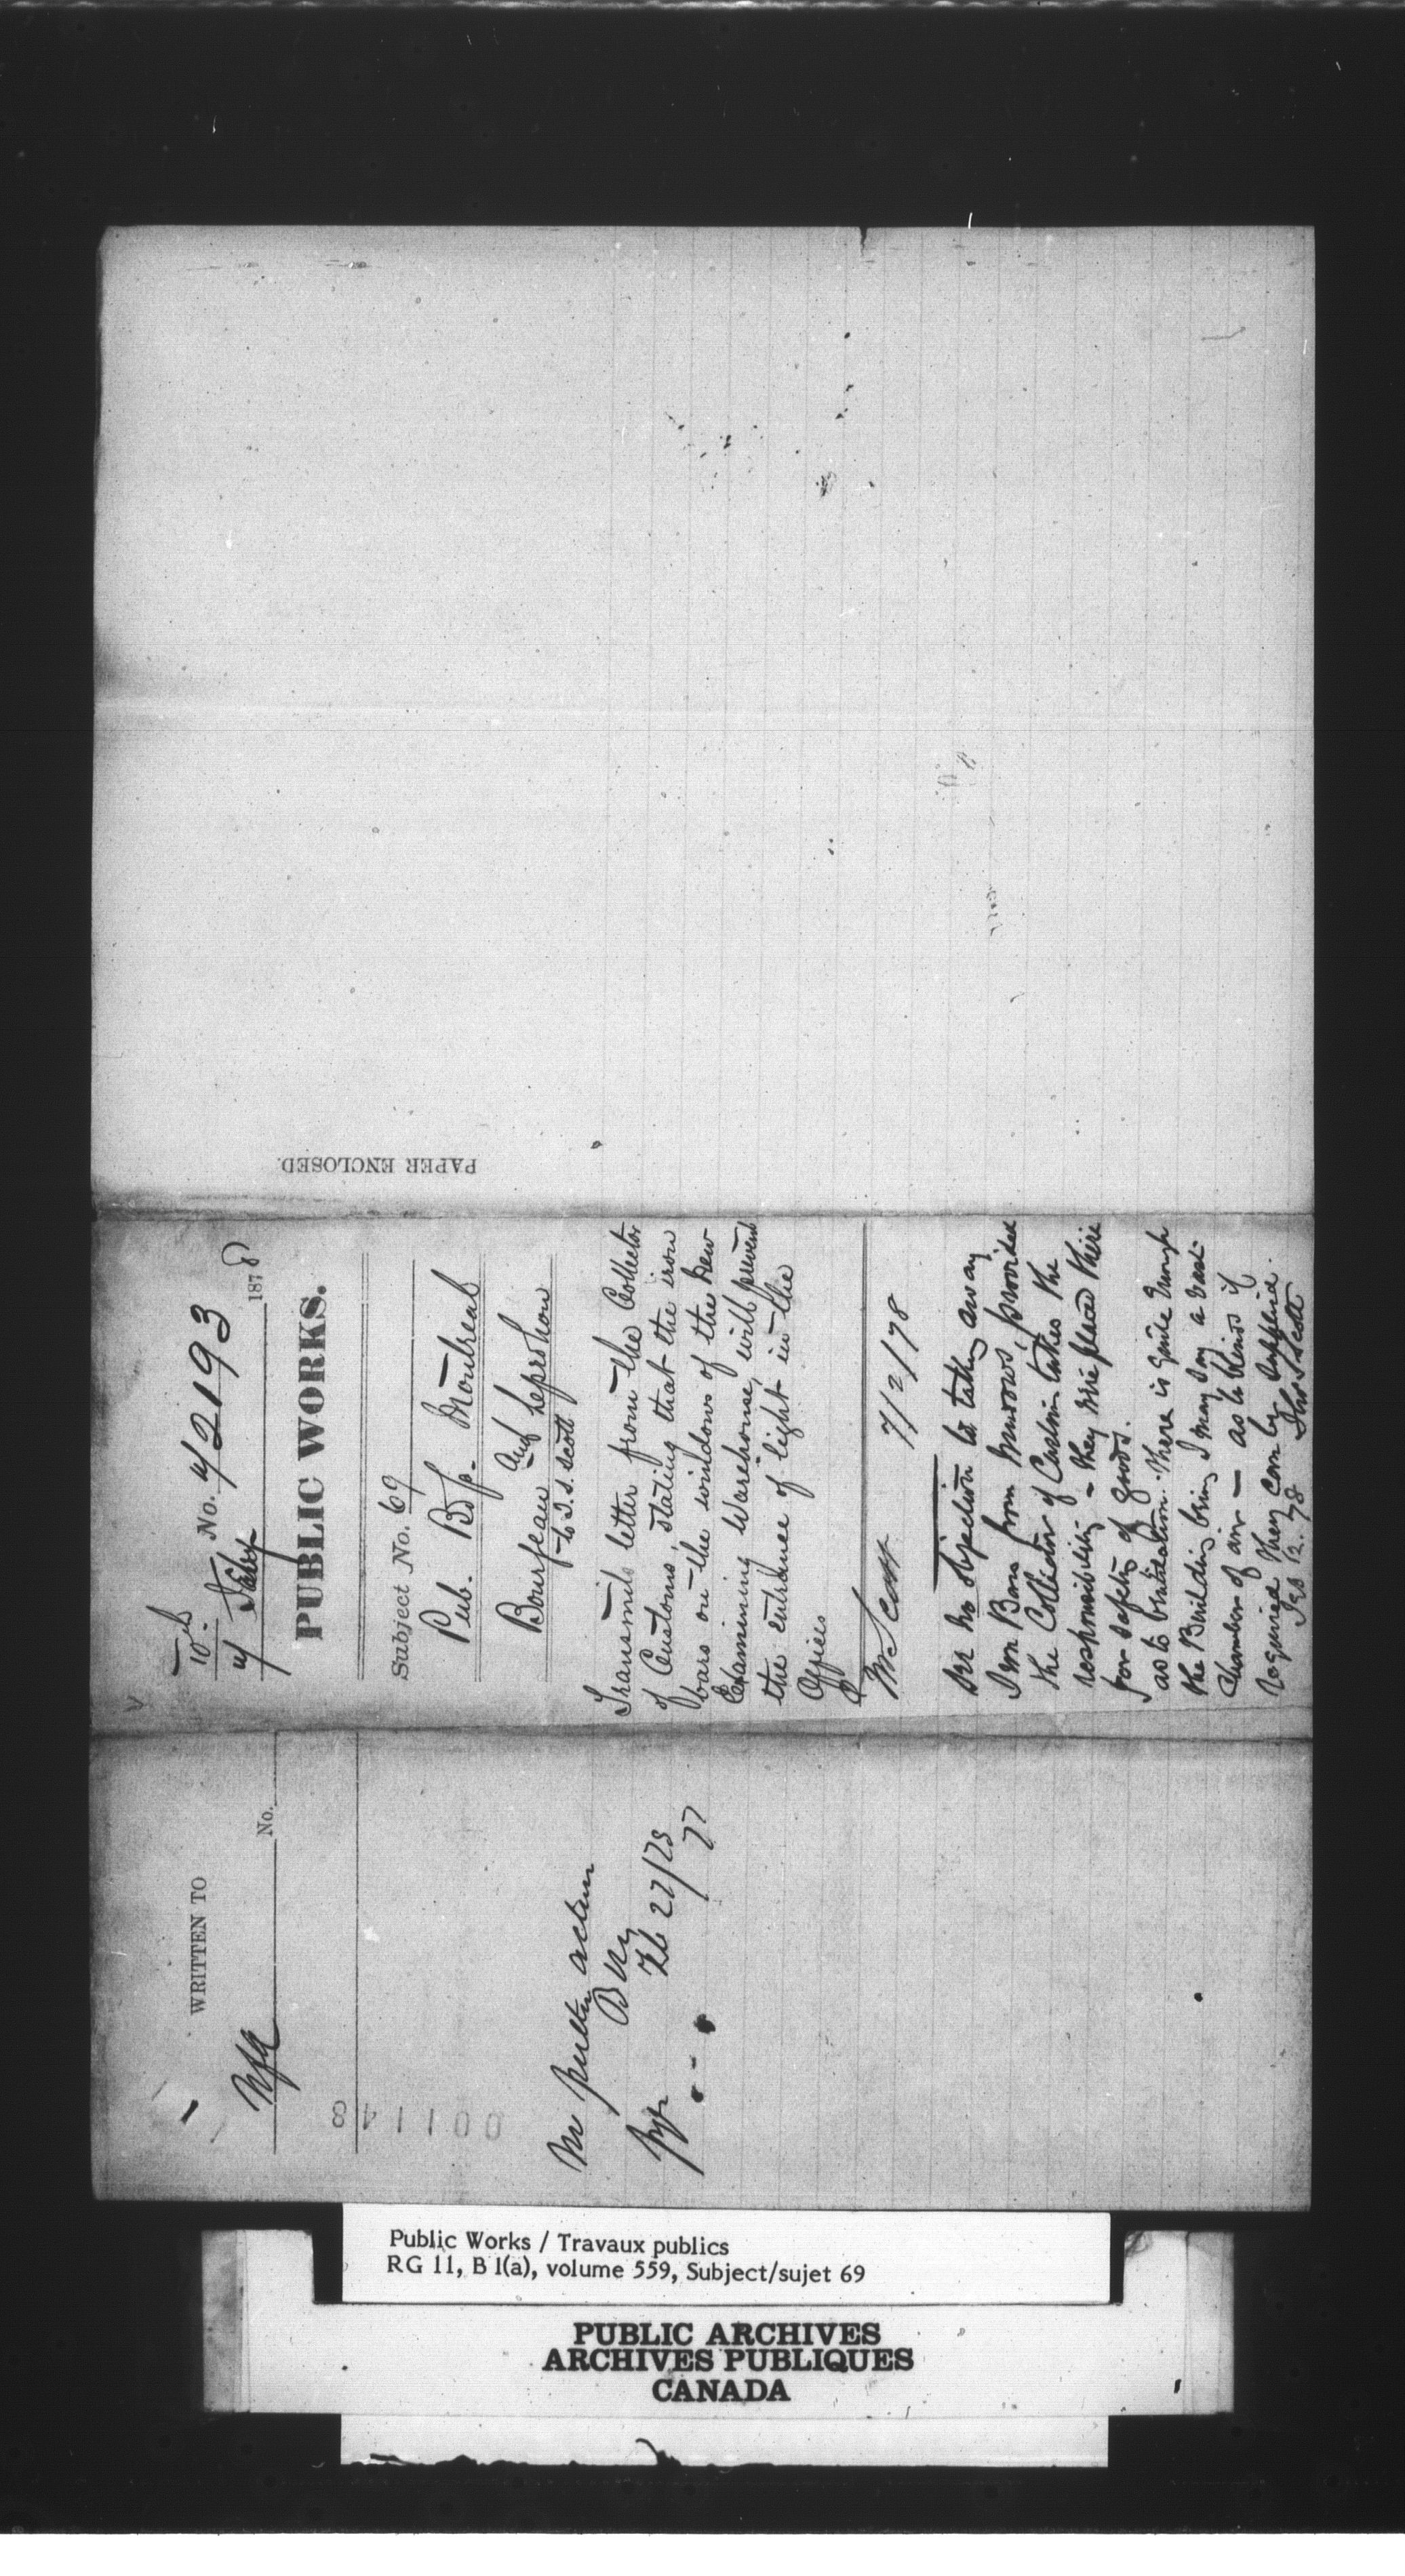 PAPER ENCLOSED.
10th
No. 72193
4 Feby 1878
PUBLIC WORKS.
Subject No. 69
Pub. Bdgs. Montreal
Bourgeau and Leprohon
to T. S. Scott
Transmits letter from the Collector
of Customs, stating that the iron
bars on the windows of the New
Examining Warehouse, will prevent
the entrance of light in the
Offices
Mr Scott 7/2/78
See no objection to taking away
Iron Bars from Windows, provided
the Collector of Custom takes the
responsibility - they were placed there
for safety of goods.
as to ventilation. There is quite enough
the Building being I may say a vast
Chamber of air — as to blinds if
required they can be supplied.
Feb 12. 78 Thos S Scott
WRITTEN TO
No.
Nfa
001148
No further action
Feb 22/78
Public Works / Travaux publics
RG 11, B 1(a), volume 559, Subject/sujet 69
PUBLIC ARCHIVES
ARCHIVES PUBLIQUES
CANADA